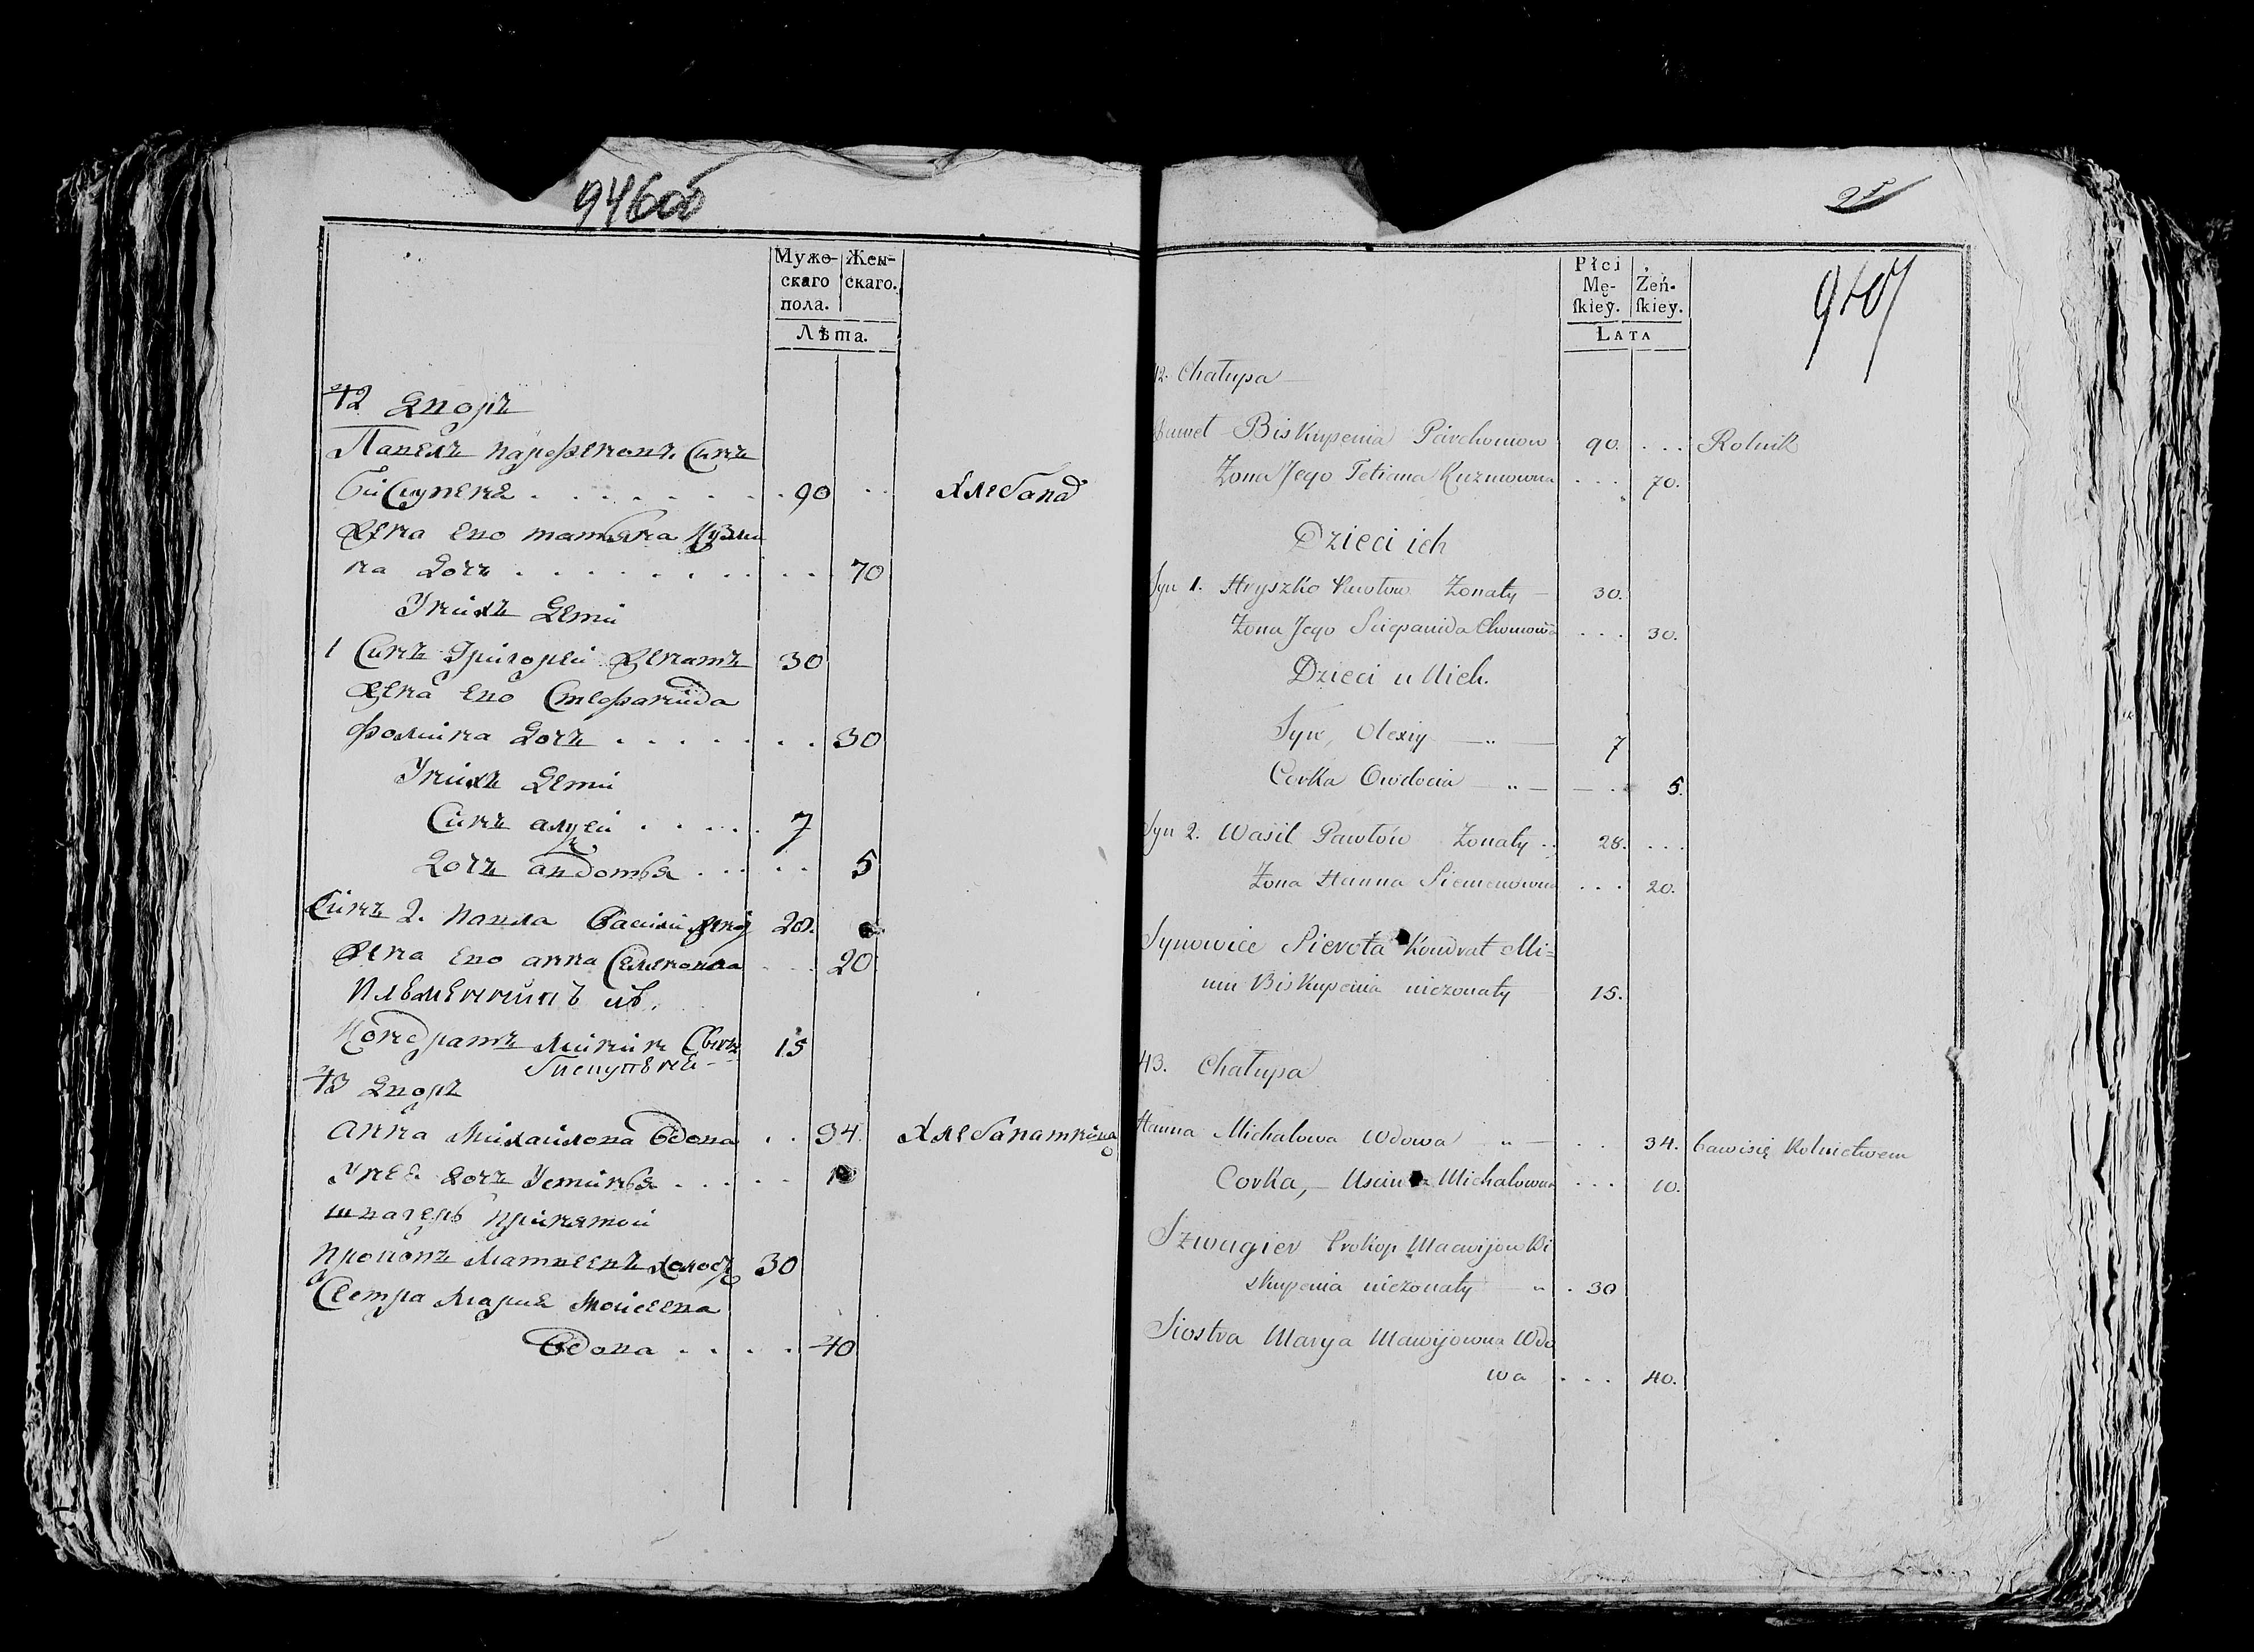 946об
Мужескаго пола. Женскаго.
Лѣта.
42 Дворъ
Павелъ парфеновъ Синъ
бискупеня 90 Хлебапа
Жена ево татьяна Кузми
на Дочъ 70
У нихъ Дети
1 Синъ Григорей Женатъ 30
Жена ево Стефанида
Фомина Дочъ 30
У нихъ Дети
Синъ 7
Дочъ авдотья 5
Синъ 2. павла василий 28.
Жена ево анна Семенова 20
Племенникъ ив.
Кондратъ Минин Синъ 15
бискупеня
43 Дворъ
анна Михайлова Вдова 34.
У нее Дочъ Устинья 10
швагеръ принятой
прокопъ Матвеевъ холост 30
Сестра Мария
Вдова 40
95
947
Płci Męſkiey. Żeńſkiey.
LATA
42. Chałupa
Paweł Biskupenia Parchomow 90. Rolnik
Żona Jego Tetiana Kuzmowna 70.
Dzieci ich
Syn 1. Hryszko Pawłow Żonaty 30.
Żona Jego Sciepanida Chomowa 30.
Dzieci u Nich.
Syn, Olexiy 7
Corka Owdocia 5.
Syn 2. Wasil Pawłów Żonaty 28.
Żona Hanna Siemenowna 20.
Synowiec Sierota Kondrat Mi=
nin Biskupenia nieżonaty 15.
43. Chałupa
Hanna Michałowa Wdowa 34. bawi się Rolnictwem
Corka, Michałowna 10.
Szwagier Prokop Macwijow Bi
skupenia nieżonaty 30
Siostra Marya Mawijowna Wdo
wa 40.